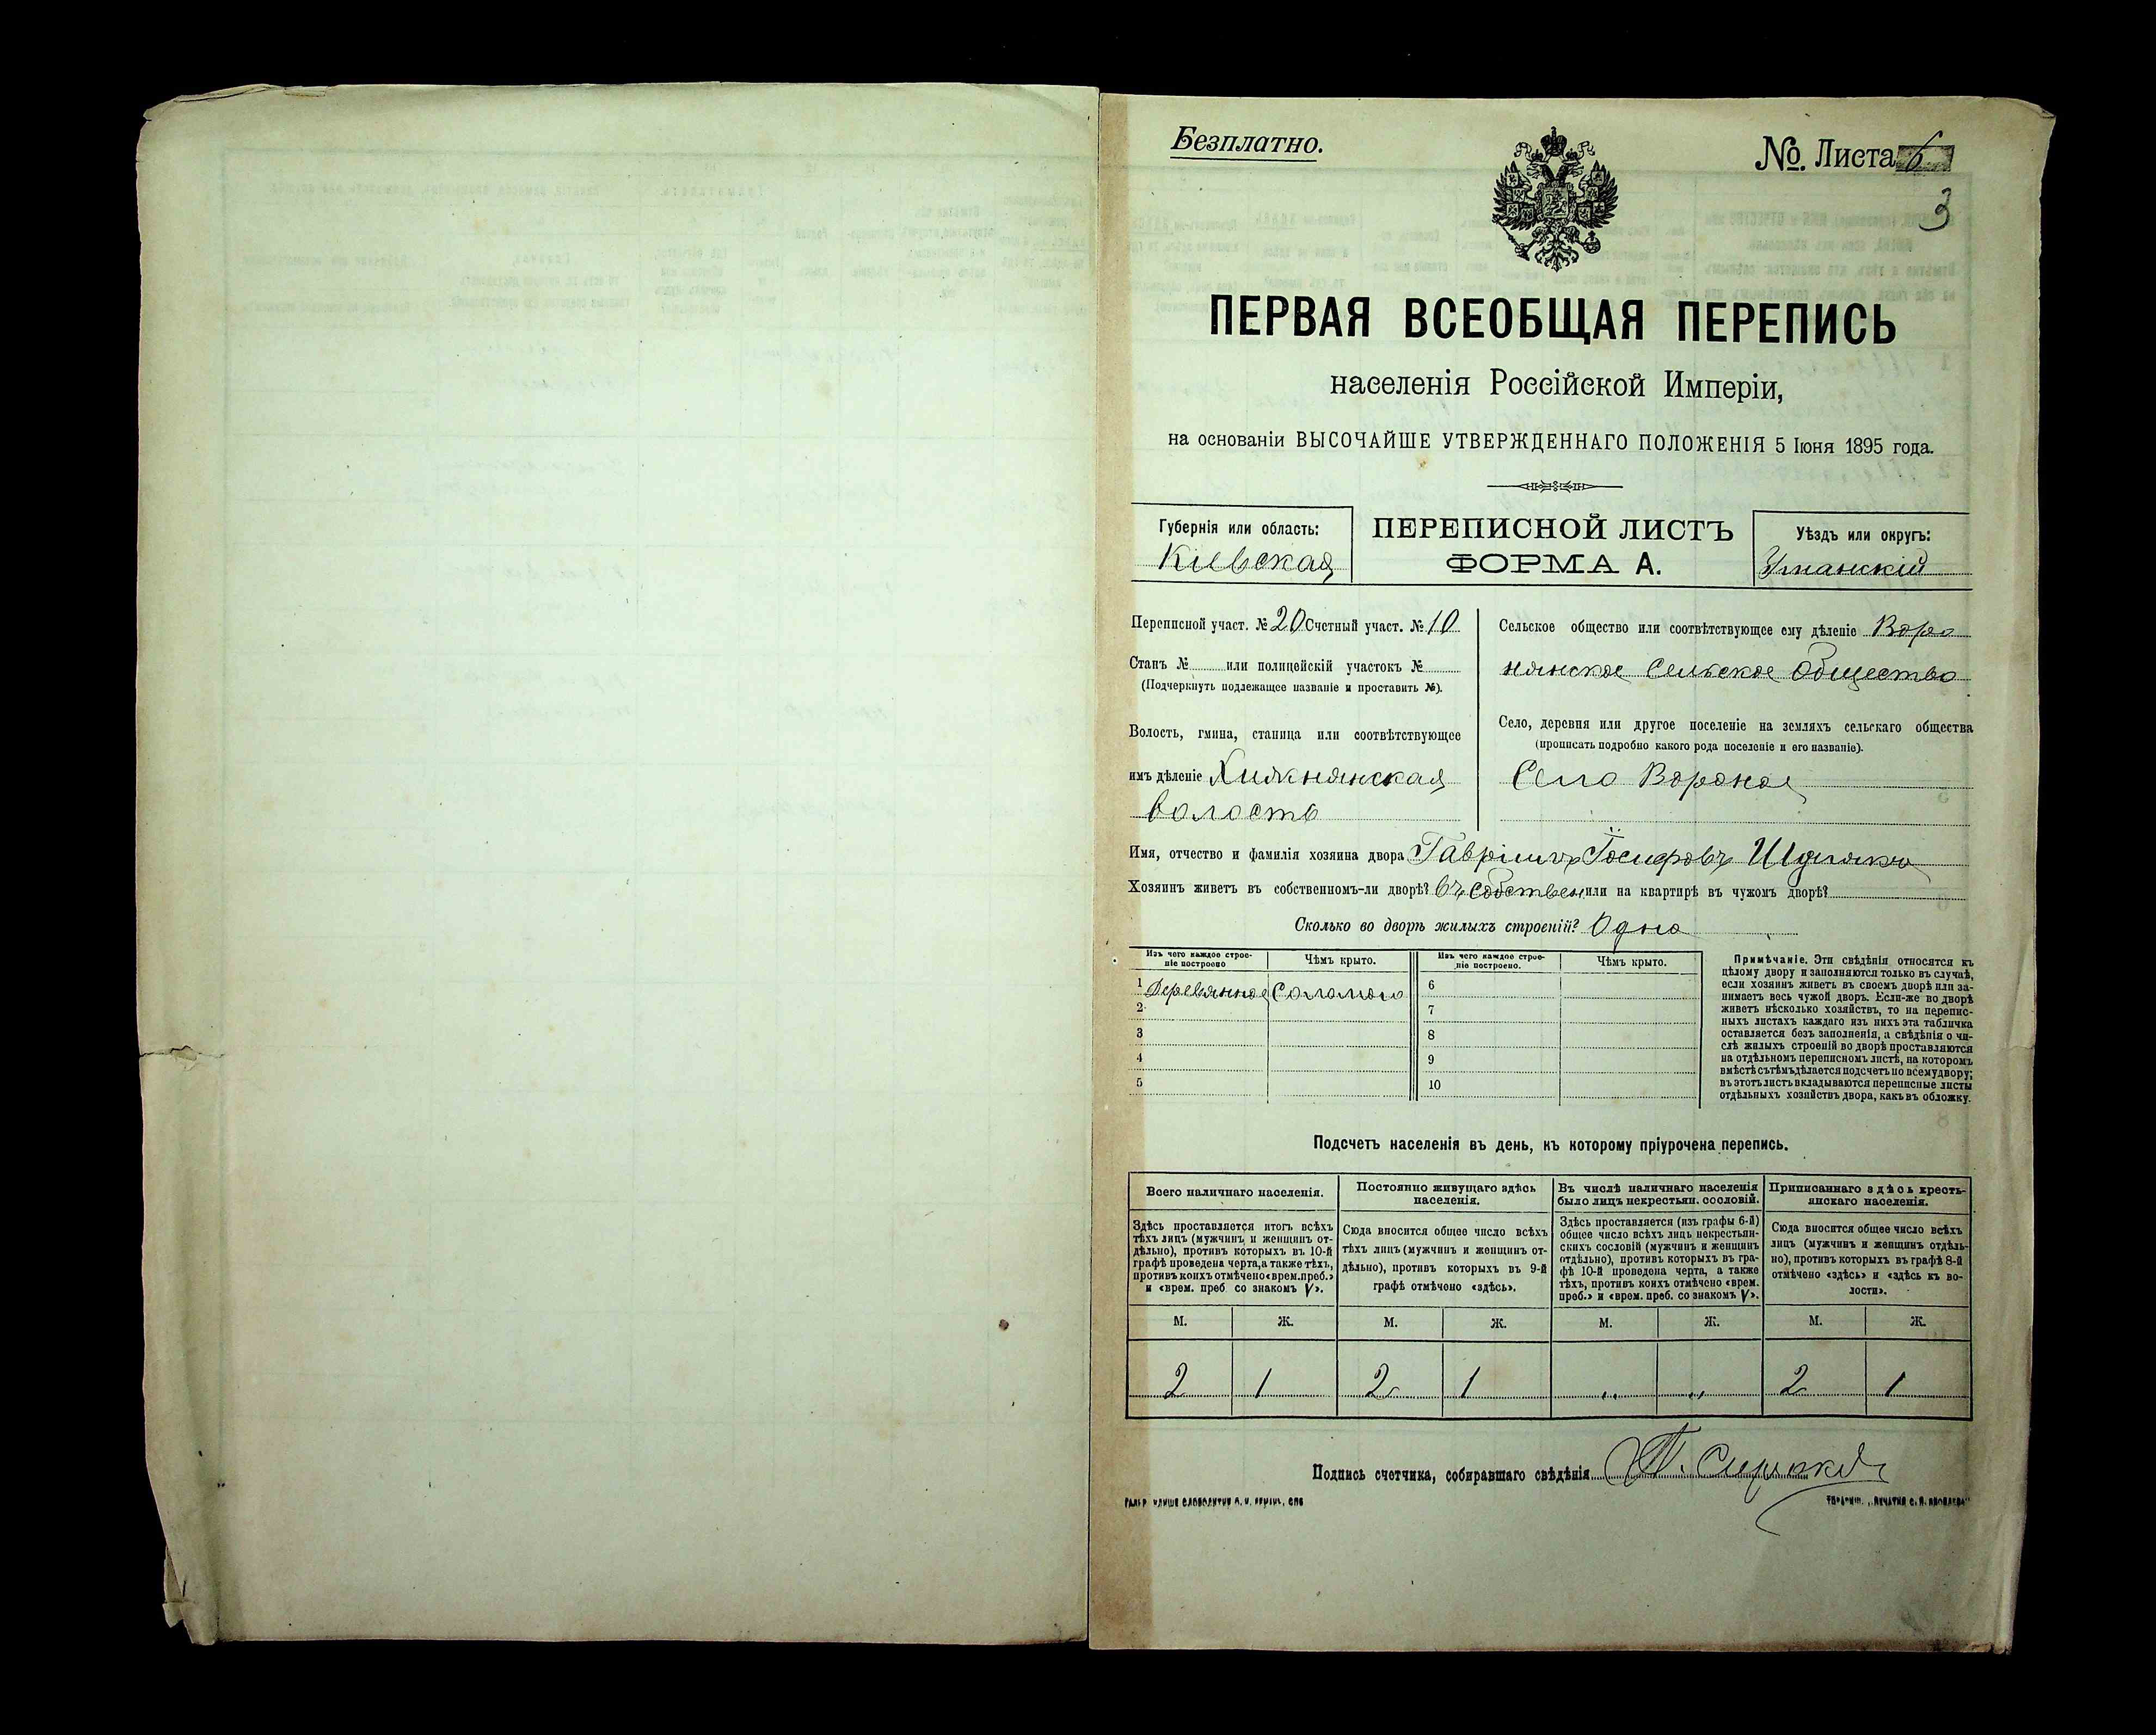 Безплатно.
№ Листа 6
3
ПЕРВАЯ ВСЕОБЩАЯ ПЕРЕПИСЬ
населенія Россійской Имперіи,
на основаніи ВЫСОЧАЙШЕ УТВЕРЖДЕННАГО ПОЛОЖЕНІЯ 5 Іюня 1895 года.
Губернія или область:
Кіевская
ПЕРЕПИСНОЙ ЛИСТЪ
ФОРМА А.
Уѣздъ или округъ:
Уманскій
Переписной участ. № 20 Счетный участ. № 10
Станъ № или полицейскій участокъ №
(Подчеркнуть подлежащее названіе и проставить №).
Волость, гмина, станица или соотвѣтствующее
имъ дѣленіе
волость
Сельское общество или соотвѣтствующее ему дѣленіе Воро
нянское Сельское Общество
Село, деревня или другое поселеніе на земляхъ сельскаго общества
(прописать подробно какого рода поселеніе и его названіе).
Село Вороное
Имя, отчество и фамилія хозяина двора Гавріилъ Іосифовъ
Хозяинъ живетъ въ собственномъ-ли дворѣ? въ собствен или на квартирѣ въ чужомъ дворѣ?
Сколько во дворѣ жилыхъ строеній? Одно
Изъ чего каждое строе-
ніе построено
Чѣмъ крыто.
Изъ чего каждое строе-
ніе построено.
Чѣмъ крыто.
1 Деревянное Соломою
2
3
4
5
6
7
8
9
10
Примѣчаніе. Эти свѣдѣнія относятся къ
цѣлому двору и заполняются только въ случаѣ,
если хозяинъ живетъ въ своемъ дворѣ или за-
нимаетъ весь чужой дворъ. Если-же во дворѣ
живетъ нѣсколько хозяйствъ, то на перепис-
ныхъ листахъ каждаго изъ нихъ эта табличка
оставляется безъ заполненія, а свѣдѣнія о чи-
слѣ жилыхъ строеній во дворѣ проставляются
на отдѣльномъ переписномъ листѣ, на которомъ
вмѣстѣ съ тѣмъ дѣлается подсчетъ по всему двору;
въ этотъ листъ вкладываются переписные листы
отдѣльныхъ хозяйствъ двора, какъ въ обложку.
Подсчетъ населенія въ день, къ которому пріурочена перепись.
Всего наличнаго населенія.
Здѣсь проставляется итогъ всѣхъ
тѣхъ лицъ (мужчинъ и женщинъ от-
дѣльно), противъ которыхъ въ 10-й
графѣ проведена черта, а также тѣхъ,
противъ коихъ отмѣчено «врем. преб.»
и «врем. преб. со знакомъ V».
Постоянно живущаго здѣсь
населенія.
Сюда вносится общее число всѣхъ
тѣхъ лицъ (мужчинъ и женщинъ от-
дѣльно), противъ которыхъ въ 9-й
графѣ отмѣчено «здѣсь».
Въ числѣ наличнаго населенія
было лицъ некрестьян. сословій.
Здѣсь проставляется (изъ графы 6-й)
общее число всѣхъ лицъ некрестьян-
скихъ сословій (мужчинъ и женщинъ
отдѣльно), противъ которыхъ въ гра-
фѣ 10-й проведена черта, а также
тѣхъ, противъ коихъ отмѣчено «врем.
преб.» и «врем. преб. со знакомъ V».
Приписаннаго здѣсь кресть-
янскаго населенія.
Сюда вносится общее число всѣхъ
лицъ (мужчинъ и женщинъ отдѣль-
но), противъ которыхъ въ графѣ 8-й
отмѣчено «здѣсь» и «здѣсь къ во-
лости».
М. Ж. М. Ж. М. Ж. М. Ж.
2 1 2 1 „ „ 2 1
Подпись счетчика, собиравшаго свѣдѣнія